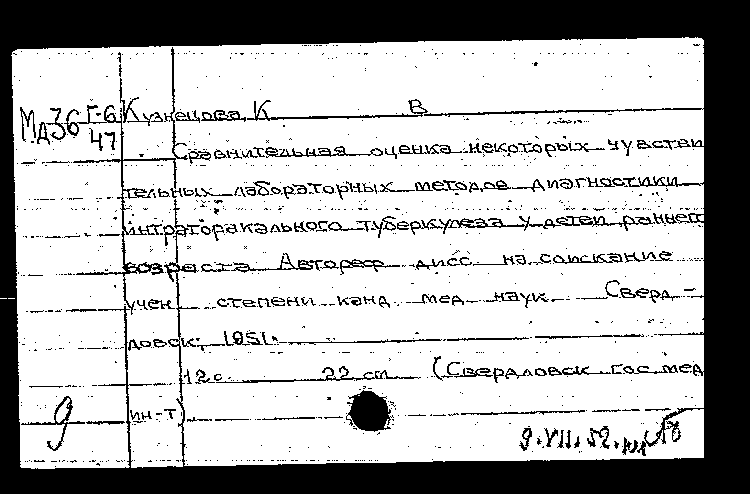 МА36 Г-6 Кузнецова, К В
47 Сравнительная оценка некоторых чувстви
тельных лабораторных методов диагностики
интраторакального туберкулеза у детей раннего
возраста Автореф дисс на соискание
учен степени канд мед наук Сверд-
ловск, 1951.
12 с. 22 см (Свердловск гос. мед
ин-т).
9
9.VII.52.